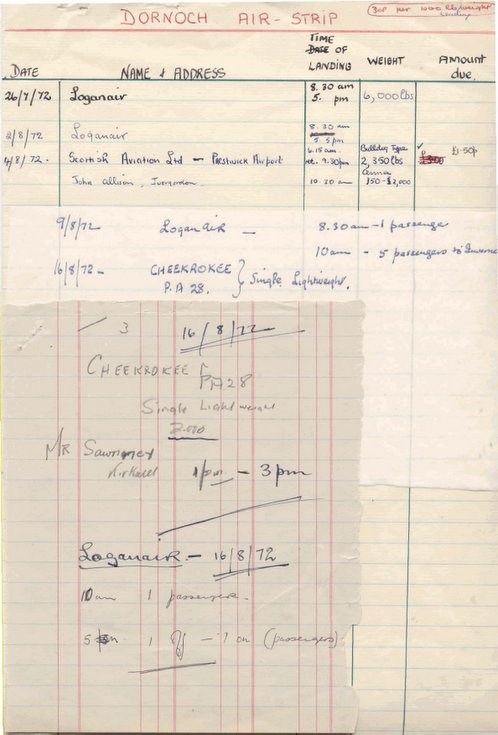 DORNOCH AIR-STRIP
DATE NAME & ADDRESS TIME DATE OF LANDING WEIGHT AMOUNT due
26/7/72 Loganair 8.30 am 6,000lbs
5. pm
2/8/72 Loganair 8.30 am
5.5pm
4/8/72. Scottish Aviation Ltd - Prestwick Airport 6.15am 7.30pm Bulldog Type 2,350lbs £1.50p
John Allison, Invergordon 10.20 am 150-
9/8/72 Loganair — 8.30am - 1 passenger
10am - 5 passengers to Inverness
16/8/72 - CHEEKROKEE } Single Lightweight.
P.A 28.
3 16/8/72
CHEEKROKEE PA28
Single Light weight
2.00
MR
1pm - 3pm
Loganair. - 16/8/72
10am 1 passenger.
5 pm 1 off - 1 on (passengers)